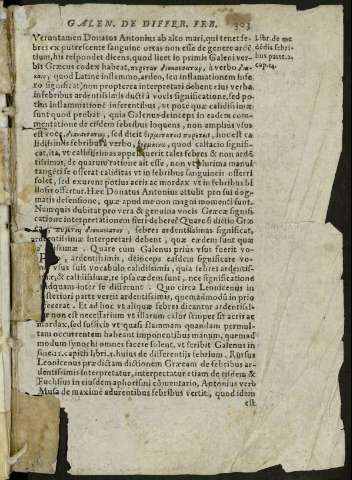 GALEN. DE DIFFER. FEB.
303
Veruntamen Donatus Antonius ab alto mari, qui tenet fe-
bres ex putrescente sanguine ortas non esse de genere ardē
tium, his respondet dicens, quod licet in primis Galeni ver-
bis Græcus codex habeat, à verbo
quod Latinè inflammo, ardeo, seu inflamationem infe-
ro significat; non propterea interpretari debent eius verba
in febribus ardentissimis ductā à vocis significatione, sed po
tius inflammationē inferentibus, vt pote quæ calidissimæ
sunt quod probat, quia Galenus deinceps in eadem com-
mentatione de eisdem febribus loquens, non amplius vsus
est voce, sed dicit hoc est ca
lidissimis febribus à verbo, quod calfacio signifi-
cat, ita, vt calidissimas appellauerit tales febres & non ardē
tissimas, de quarum ratione ait esse, non vt plurima manui
tangēti se offerat caliditas vt in febribus sanguineis offerri
solet, sed exurens potius acris ac mordax vt in febribus bi
liosis offertur. Hæc Donatus Antonius attulit pro sui dog-
matis defensione, quæ apud me non magni momenti sunt.
Nam quis dubitat pro vera & genuina vocis Græcæ signifi-
catione interpretationem fieri debere? Quare si dictio Græ
febres ardentissimas significat,
ardentissimæ interpretari debent, quæ eædem sunt quæ
Quare cum Galenus prius vsus fuerit vo-
ardentissimis, deinceps easdem significare vo
vsus fuit vocabulo calidissimis, quia febres ardentis-
& calidissimæ re ipsa eædem sunt, nec significatione
inter se differunt. Quo circa Leonicenus in
posteriori parte vertit ardentissimis, quemadmodū in prio
fecerat. Et ad hoc vt aliquæ febres dicantur ardentissi-
non est necessarium vt illarum calor semper sit acris ac
mordax, sed sufficit vt quasi flammam quandam permul-
tam occurrentem habeant imponentibus manim, quemad
modum synochi omnes facere solent, vt scribit Galenus in
capitis libri. 1. huius de differentijs febrium. Rursus
Leonicenus prædictam dictionem Græcam de febribus ar-
dentissimis interpretatur, interpretatur etiam de eisdem &
Fuchsius in eiusdem aphorismi cōmentario, Antonius verò
Musa de maximè adurentibus febribus vertit, quod idem
est
Lib. de me
dēdis febri-
bus parte.2.
cap.14.